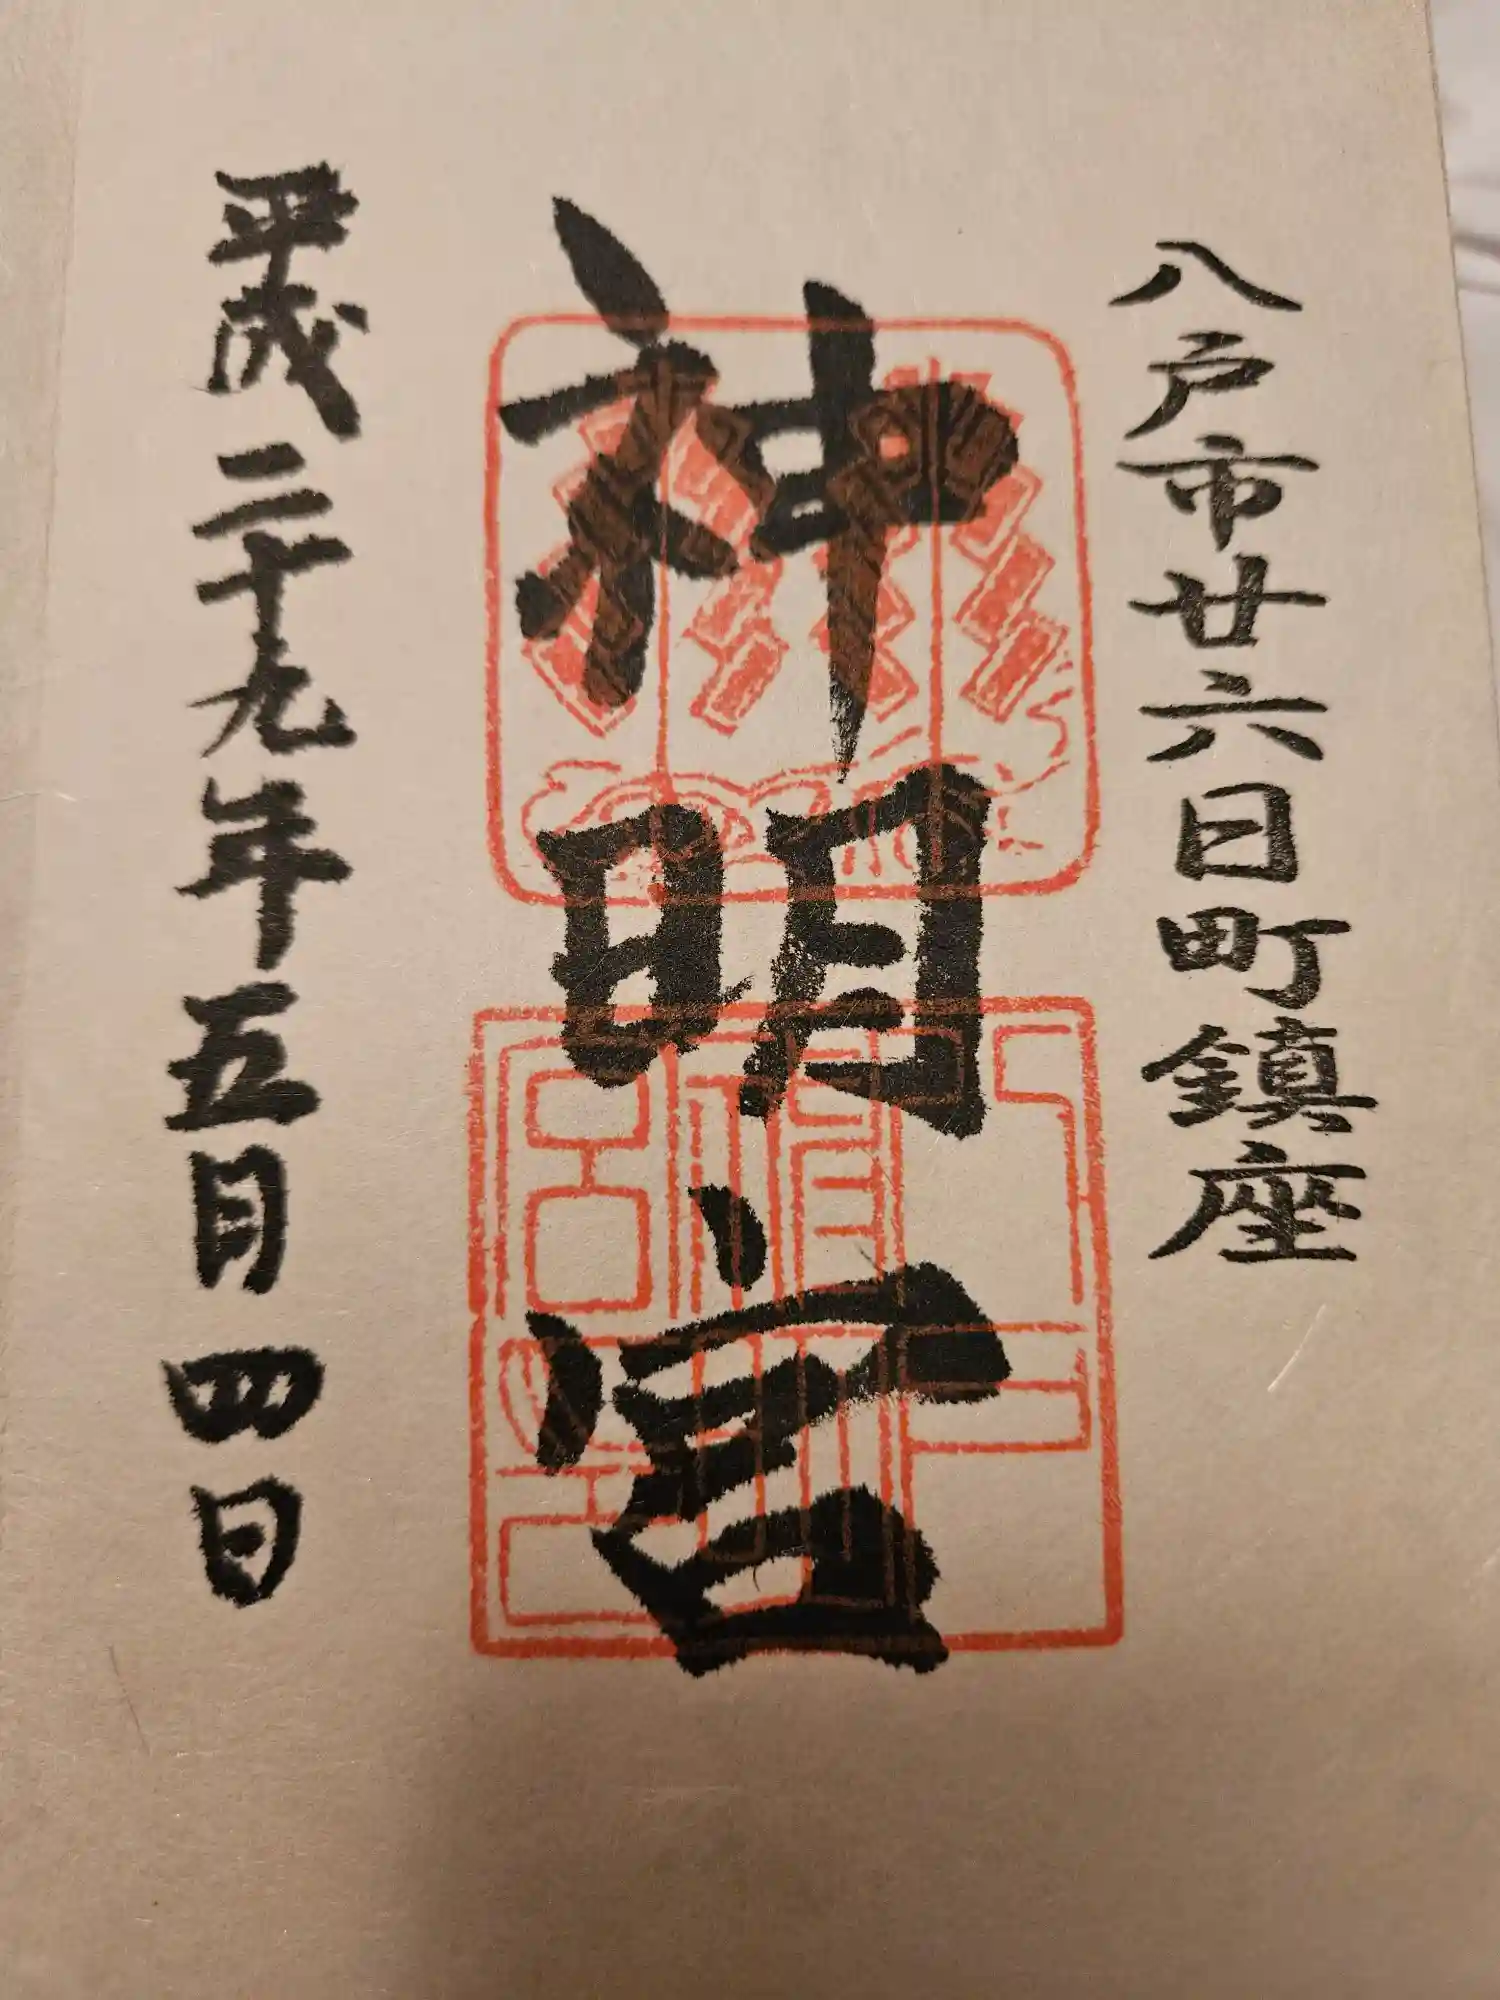 八戸市廿六日町鎮座
神明宮
平成二十九年五月四日